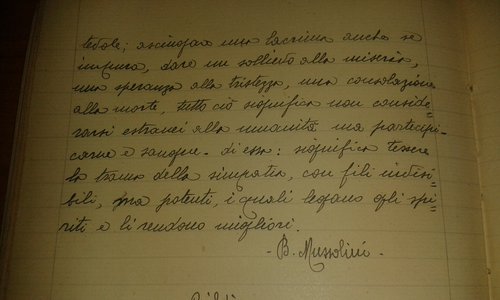 tevole; asciugare una lacrima anche se
impura, dare un sollievo alla miseria,
una speranza alla tristezza, una consolazione
alla morte, tutto ciò significa non conside-
rarsi estranei alla umanità ma partecipi-
carne e sangue - di essa: significa tessere
la trama della simpatia, con fili invisi-
bili, ma potenti, i quali legano gli spi-
riti e li rendono migliori.
- B. Mussolini -